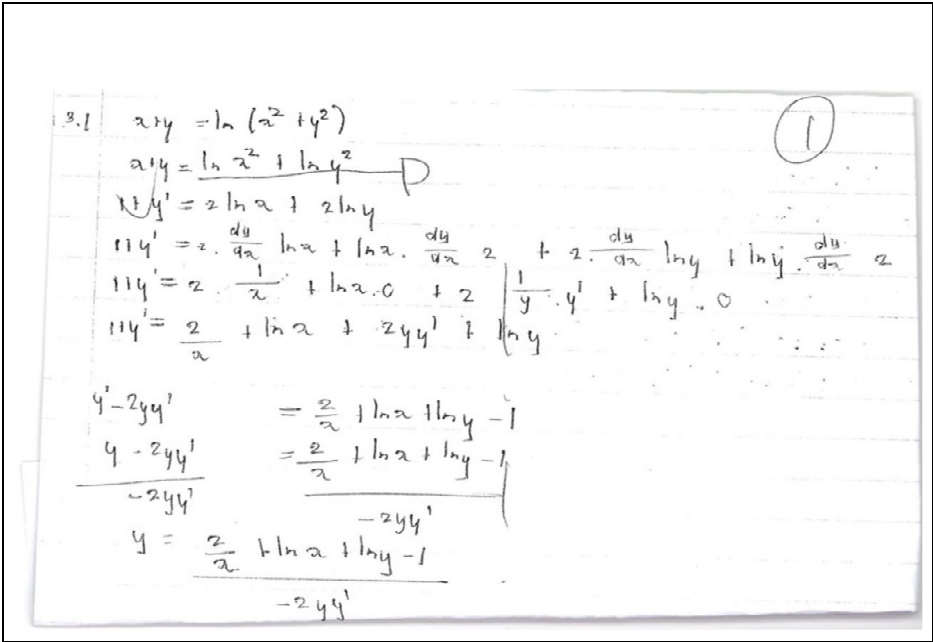 3.1 x+y = ln (x² + y²)
1
x+y = ln x² + ln y²
1+y' = 2 ln x + 2 ln y
1+y' = 2. dy/dx ln x + ln x. dy/dx 2 + 2. dy/dx ln y + ln y. dy/dx 2
1+y' = 2 1/x + ln x.0 + 2 1/y.y' + ln y.0
1+y' = 2/x + ln x + 2yy' + ln y
y'-2yy' = 2/x + ln x + ln y -1
y - 2yy' / -2yy' = 2/x + ln x + ln y -1 / -2yy'
y = 2/x + ln x + ln y -1 / -2yy'